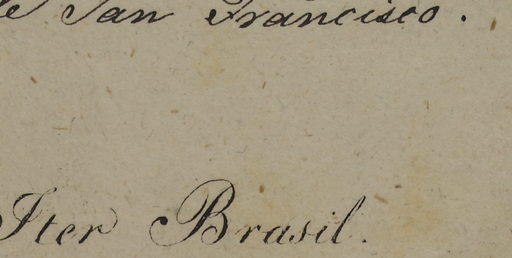 San Francisco.
Iter Brasil.